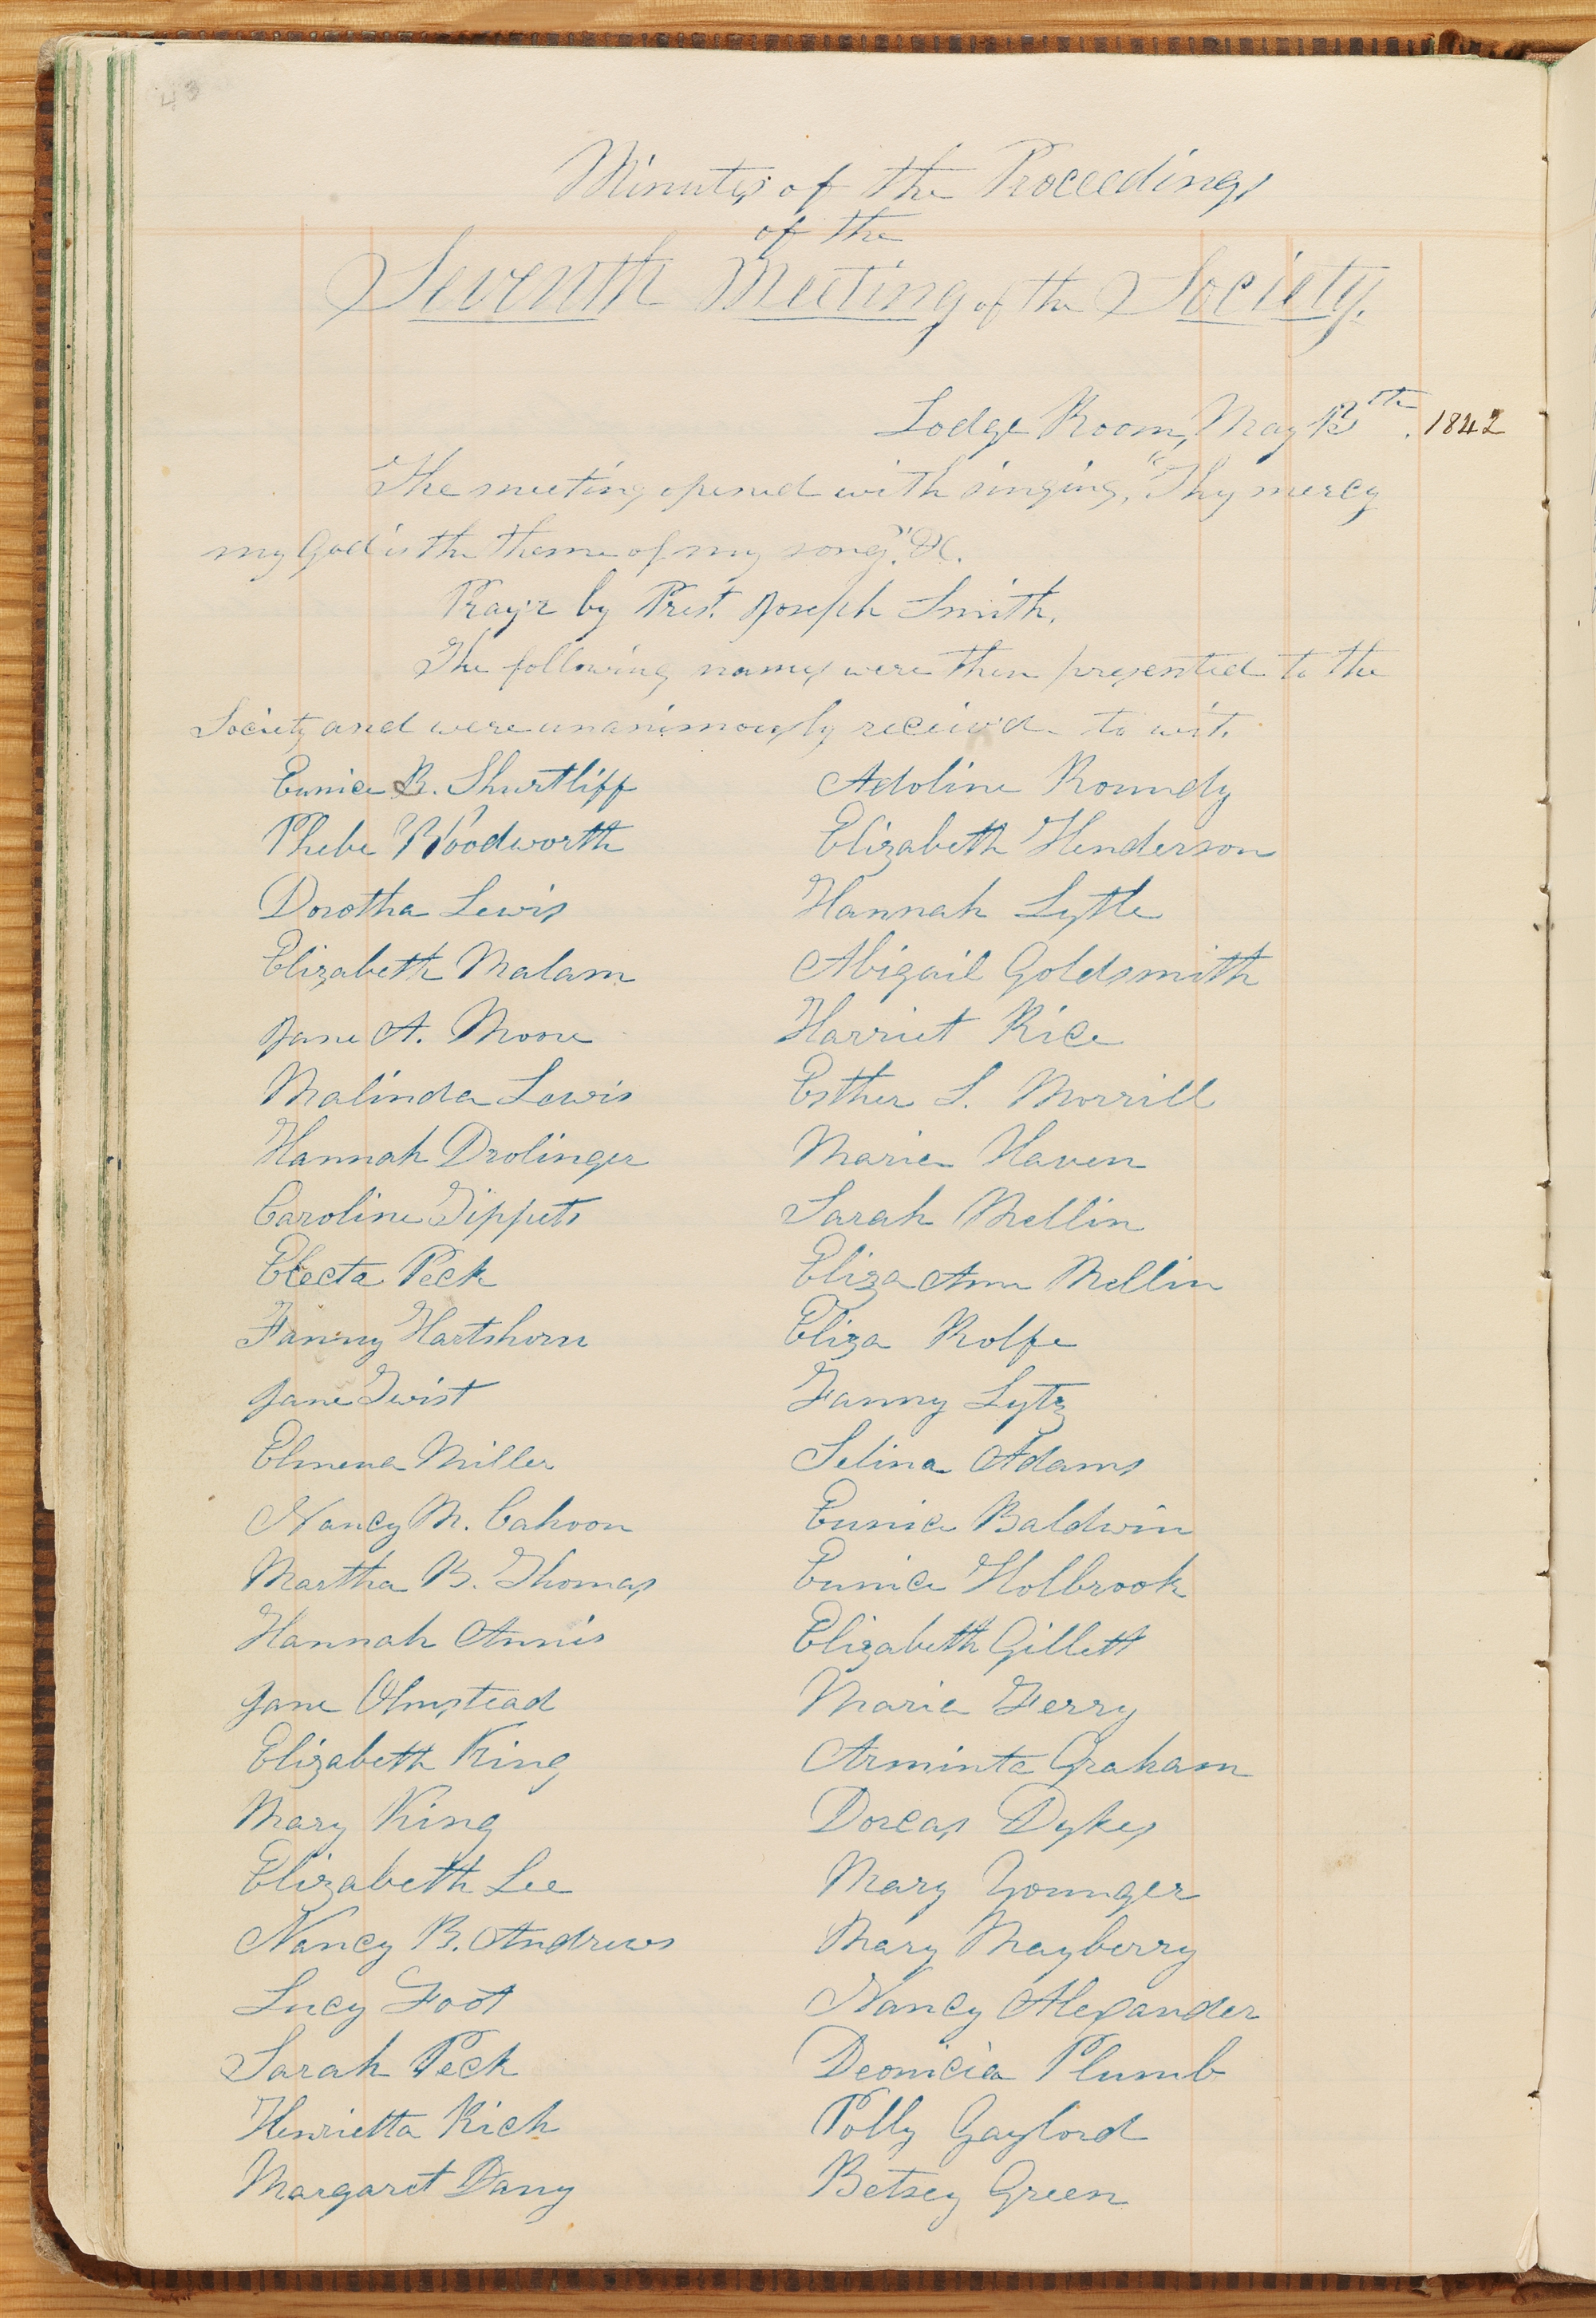 43
Minutes of the Proceedings
of the
Seventh Meeting of the Society.
Lodge Room, May 13th. 1842
The meeting opened with singing, "Thy mercy
my God is the theme of my song." &c.
Pray'r by Prest. Joseph Smith.
The following names were then presented to the
Society and were unanimously receiv'd to wit.
Eunice B. Shurtliff Adoline Roundy
Phebe Woodworth Elizabeth Henderson
Dorotha Lewis Hannah Lytle
Elizabeth Malam Abigail Goldsmith
Jane A. Moore Harriet Rice
Malinda Lewis Esther L. Morrill
Hannah Drolinger Maria Haven
Caroline Tippets Sarah Mellin
Electa Peck Eliza Ann Mellin
Fanny Hartshorn Eliza Rolfe
Jane Twist Fanny Lytz
Elmena Miller Selina Adams
Nancy M. Cahoon Eunice Baldwin
Martha B. Thomas Eunice Holbrook
Hannah Annis Elizabeth Gillett
Jane Olmstead Maria Terry
Elizabeth King Arminta Graham
Mary King Dorcas Dykes
Elizabeth Lee Mary Younger
Nancy B. Andrews Mary Mayberry
Lucy Foot Nancy Alexander
Sarah Peck Deonicia Plumb
Henrietta Rich Polly Gaylord
Margaret Dany Betsey Green